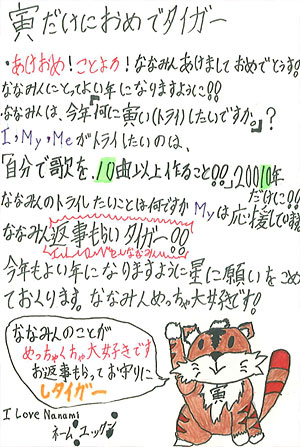 寅だけにおめでタイガー
・あけおめ!ことよろ!ななみんあけましておめでとう!!
ななみんにとってよい年になりますように!!
ななみんは、今年「何に寅い(トライ)したいですか」?
I,My,Meがトライしたいのは、
「自分で歌を、10曲以上作ること!!」20010年
だけに!!
ななみんのトライしたいことは何ですか Myは応援してる
ななみん返事もらいタイガー!!
今年もよい年になりますように星に願いをこめ
ておくります。ななみんめっちゃ大好きです!
ななみんのことが
めっちゃくちゃ大好きです
お返事もらってお守りに
しタイガー
寅
I Love Nanami
ネーム:ユッケ